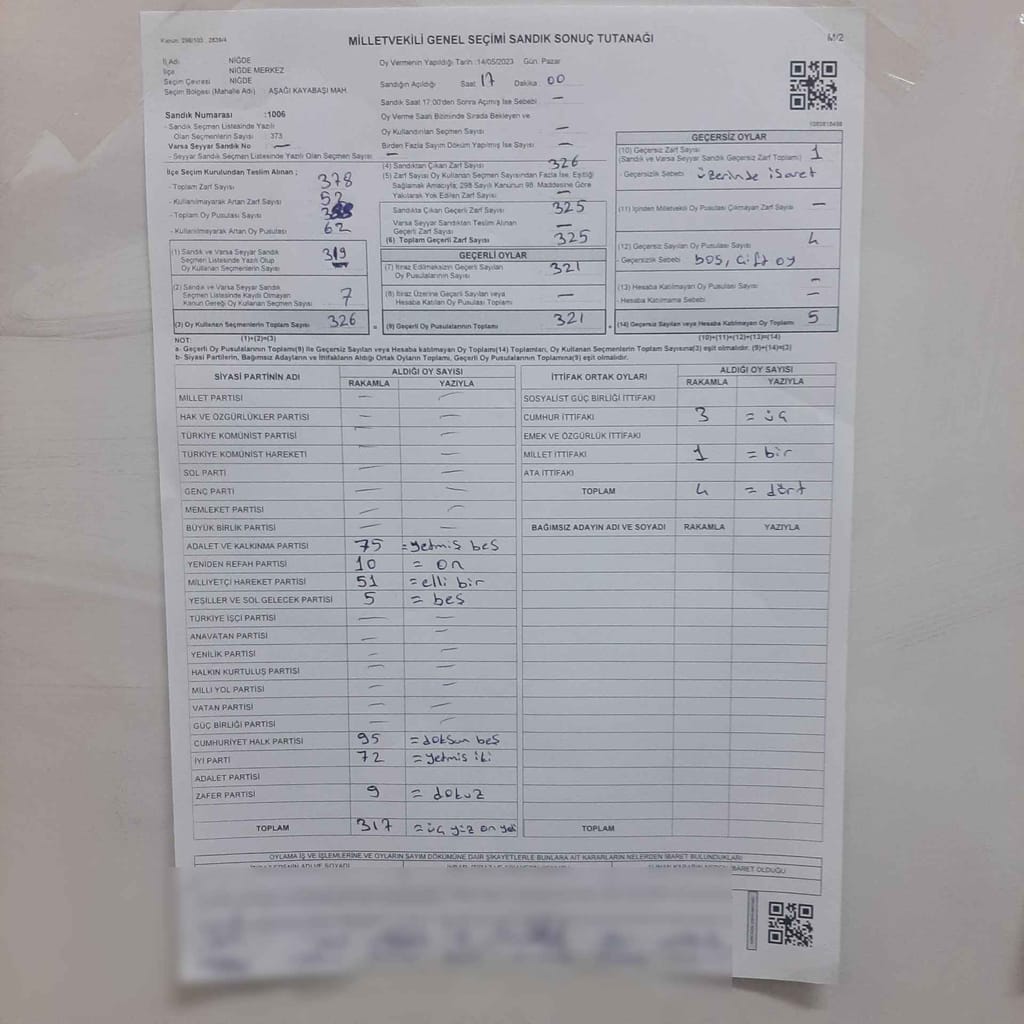 Kanun: 298/103 , 2839/4
MİLLETVEKİLİ GENEL SEÇİMİ SANDIK SONUÇ TUTANAĞI
M/2
İl Adı NİĞDE
İlçe NİĞDE MERKEZ
Seçim Çevresi NİĞDE
Seçim Bölgesi (Mahalle Adı) : AŞAĞI KAYABAŞI MAH.
Sandık Numarası :1006
- Sandık Seçmen Listesinde Yazılı
Olan Seçmenlerin Sayısı : 373
Varsa Seyyar Sandık No —
- Seyyar Sandık Seçmen Listesinde Yazılı Olan Seçmen Sayısı —
İlçe Seçim Kurulundan Teslim Alınan ;
- Toplam Zarf Sayısı 378
- Kullanılmayarak Artan Zarf Sayısı 52
- Toplam Oy Pusulası Sayısı
- Kullanılmayarak Artan Oy Pusulası 62
(1) Sandık ve Varsa Seyyar Sandık
Seçmen Listesinde Yazılı Olup
Oy Kullanan Seçmenlerin Sayısı 319
(2) Sandık ve Varsa Seyyar Sandık
Seçmen Listesinde Kaydı Olmayan
Kanun Gereği Oy Kullanan Seçmen Sayısı 7
(3) Oy Kullanan Seçmenlerin Toplam Sayısı 326
(1)+(2)=(3)
Oy Vermenin Yapıldığı Tarih :14/05/2023 Gün: Pazar
Sandığın Açıldığı Saat 17 Dakika 00
Sandık Saat 17:00'den Sonra Açılmış İse Sebebi —
Oy Verme Saati Bitiminde Sırada Bekleyen ve
Oy Kullandırılan Seçmen Sayısı —
Birden Fazla Sayım Döküm Yapılmış İse Sayısı —
(4) Sandıktan Çıkan Zarf Sayısı 326
(5) Zarf Sayısı Oy Kullanan Seçmen Sayısından Fazla İse, Eşitliği
Sağlamak Amacıyla; 298 Sayılı Kanunun 98. Maddesine Göre
Yakılarak Yok Edilen Zarf Sayısı —
Sandıkta Çıkan Geçerli Zarf Sayısı 325
Varsa Seyyar Sandıktan Teslim Alınan
Geçerli Zarf Sayısı —
(6) Toplam Geçerli Zarf Sayısı 325
GEÇERLİ OYLAR
(7) İtiraz Edilmeksizin Geçerli Sayılan
Oy Pusulalarının Sayısı 321
(8) İtiraz Üzerine Geçerli Sayılan veya
Hesaba Katılan Oy Pusulası Toplamı —
= (9) Geçerli Oy Pusulalarının Toplamı 321
GEÇERSİZ OYLAR
(10) Geçersiz Zarf Sayısı 1
(Sandık ve Varsa Seyyar Sandık Geçersiz Zarf Toplamı)
- Geçersizlik Sebebi üzerinde işaret
(11) İçinden Milletvekili Oy Pusulası Çıkmayan Zarf Sayısı —
(12) Geçersiz Sayılan Oy Pusulası Sayısı 4
- Geçersizlik Sebebi boş, çift oy
(13) Hesaba Katılmayan Oy Pusulası Sayısı —
- Hesaba Katılmama Sebebi —
+ (14) Geçersiz Sayılan veya Hesaba Katılmayan Oy Toplamı 5
(10)+(11)+(12)+(13)=(14)
NOT:
a- Geçerli Oy Pusulalarının Toplamı(9) ile Geçersiz Sayılan veya Hesaba katılmayan Oy Toplamı(14) Toplamları, Oy Kullanan Seçmenlerin Toplam Sayısına(3) eşit olmalıdır. (9)+(14)=(3)
b- Siyasi Partilerin, Bağımsız Adayların ve İttifakların Aldığı Ortak Oyların Toplamı, Geçerli Oy Pusulalarının Toplamına(9) eşit olmalıdır.
SİYASİ PARTİNİN ADI ALDIĞI OY SAYISI
RAKAMLA YAZIYLA
MİLLET PARTİSİ — —
HAK VE ÖZGÜRLÜKLER PARTİSİ — —
TÜRKİYE KOMÜNİST PARTİSİ — —
TÜRKİYE KOMÜNİST HAREKETİ — —
SOL PARTİ — —
GENÇ PARTİ — —
MEMLEKET PARTİSİ — —
BÜYÜK BİRLİK PARTİSİ — —
ADALET VE KALKINMA PARTİSİ 75 =yetmiş beş
YENİDEN REFAH PARTİSİ 10 = on
MİLLİYETÇİ HAREKET PARTİSİ 51 =elli bir
YEŞİLLER VE SOL GELECEK PARTİSİ 5 = beş
TÜRKİYE İŞÇİ PARTİSİ — —
ANAVATAN PARTİSİ — —
YENİLİK PARTİSİ — —
HALKIN KURTULUŞ PARTİSİ — —
MİLLİ YOL PARTİSİ — —
VATAN PARTİSİ — —
GÜÇ BİRLİĞİ PARTİSİ — —
CUMHURİYET HALK PARTİSİ 95 =doksan beş
İYİ PARTİ 72 =yetmiş iki
ADALET PARTİSİ
ZAFER PARTİSİ 9 = dokuz
TOPLAM 317 =üç yüz on yedi
İTTİFAK ORTAK OYLARI ALDIĞI OY SAYISI
RAKAMLA YAZIYLA
SOSYALİST GÜÇ BİRLİĞİ İTTİFAKI
CUMHUR İTTİFAKI 3 = üç
EMEK VE ÖZGÜRLÜK İTTİFAKI
MİLLET İTTİFAKI 1 = bir
ATA İTTİFAKI
TOPLAM 4 = dört
BAĞIMSIZ ADAYIN ADI VE SOYADI RAKAMLA YAZIYLA
TOPLAM
OYLAMA İŞ VE İŞLEMLERİNE VE OYLARIN SAYIM DÖKÜMÜNE DAİR ŞİKAYETLERLE BUNLARA AİT KARARLARIN NELERDEN İBARET BULUNDUKLARI